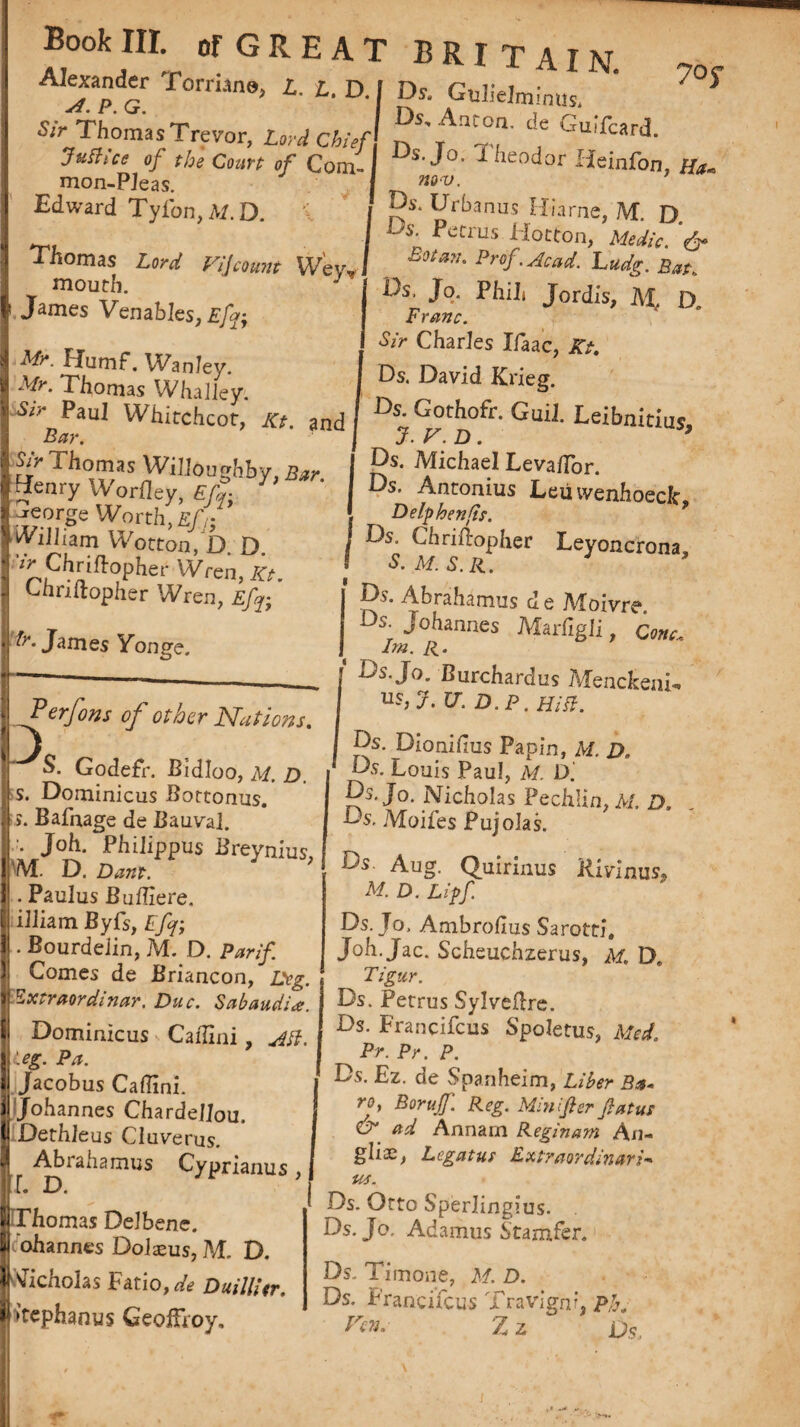 Book III. of GREAT BRITAIN. 705
Alexander Torriano, L. L. D.
A. P. G.
Sir Thomas Trevor, Lord Chief
Justice of the Court of Com-
mon-Pleas.
Edward Tyson, M. D.
Thomas Lord Viscount Wey-
mouth.
James Venables, Esq;
Mr. Humf. Wanley.
Mr. Thomas Whalley.
Sir Paul Whitchcot, Kt. and
Bar.
Sir Thomas Willoughby, Bar.
Henry Worsley, Esq;
George Worth, Es
William Wotton, D. D.
Christopher Wren, Kt.
Christopher Wren, Esq;
James Yonge.
Persons of other Nations.
DS. Godefr. Bidloo, M. D.
Dominicus Bottonus.
Basnage de Bauval.
Joh. Philippus Breynius,
M. D. Dant.
Paulus Bussiere.
illiam Byss, Esq;
Bourdelin, M. D. Paris.
Comes de Briancon, Leg.
Extraordinar. Duc. Sabaudiæ.
Dominicus Cassini, Ast.
eg. Pa.
Jacobus Cassini.
Johannes Chardellou.
Dethleus Cluverus.
Abrahamus Cyprianus,
D.
Thomas Delbene.
ohannes Dolæus, M. D.
Nicholas Fatio, de Duillier.
Stephanus Geoffroy.
Ds. Gulielminus.
Ds. Anton. de Guiscard.
Ds. Jo. Theodor Heinson, Ha-
nov.
Ds. Urbanus Hiarne, M. D.
Ds. Petrus Hotton, Medic. &
Botan. Prof. Acad. Ludg. Bat.
Ds. Jo. Phil. Jordis, M. D.
Franc.
Sir Charles Isaac, Kt.
Ds. David Krieg.
Ds. Gothofr. Guil. Leibnitius,
J. V. D.
Ds. Michael Levassor.
Ds. Antonius Leüwenhoeck,
Delphensis.
Ds. Christopher Leyoncrona,
S. M. S. R.
Ds. Abrahamus de Moivre.
Ds. Johannes Marsigli, Conc.
Im. R.
Ds. Jo. Burchardus Menckeni-
us, J. U. D. P. Hist.
Ds. Dionisius Papin, M. D.
Ds. Louis Paul, M. D.
Ds. Jo. Nicholas Pechlin, M. D.
Ds. Moises Pujolas.
Ds. Aug. Quirinus Rivinus,
M. D. Lips.
Ds. Jo. Ambrosius Sarotti.
Joh. Jac. Scheuchzerus, M. D.
Tigur.
Ds. Petrus Sylvestre.
Ds. Franciscus Spoletus, Med.
Pr. Pr. P.
Ds. Ez. de Spanheim, Liber Ba-
ro, Boruss. Reg. Minister status
& ad Annam Reginam An-
gliæ, Legatus Extraordinari-
us.
Ds. Otto Sperlingius.
Ds. Jo. Adamus Stamfer.
Ds. Timone, M. D.
Ds. Franciscus Travigni, Ph.
Ven. Z z Ds.